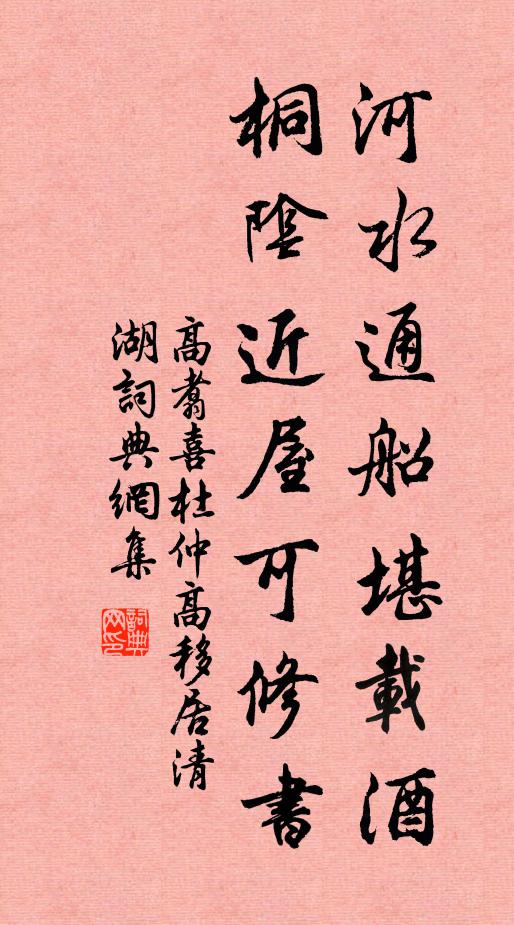 河水通船堪載酒
桐陰近屋可修書
高翥喜杜仲高移居清
湖詞典網集
詞典網印